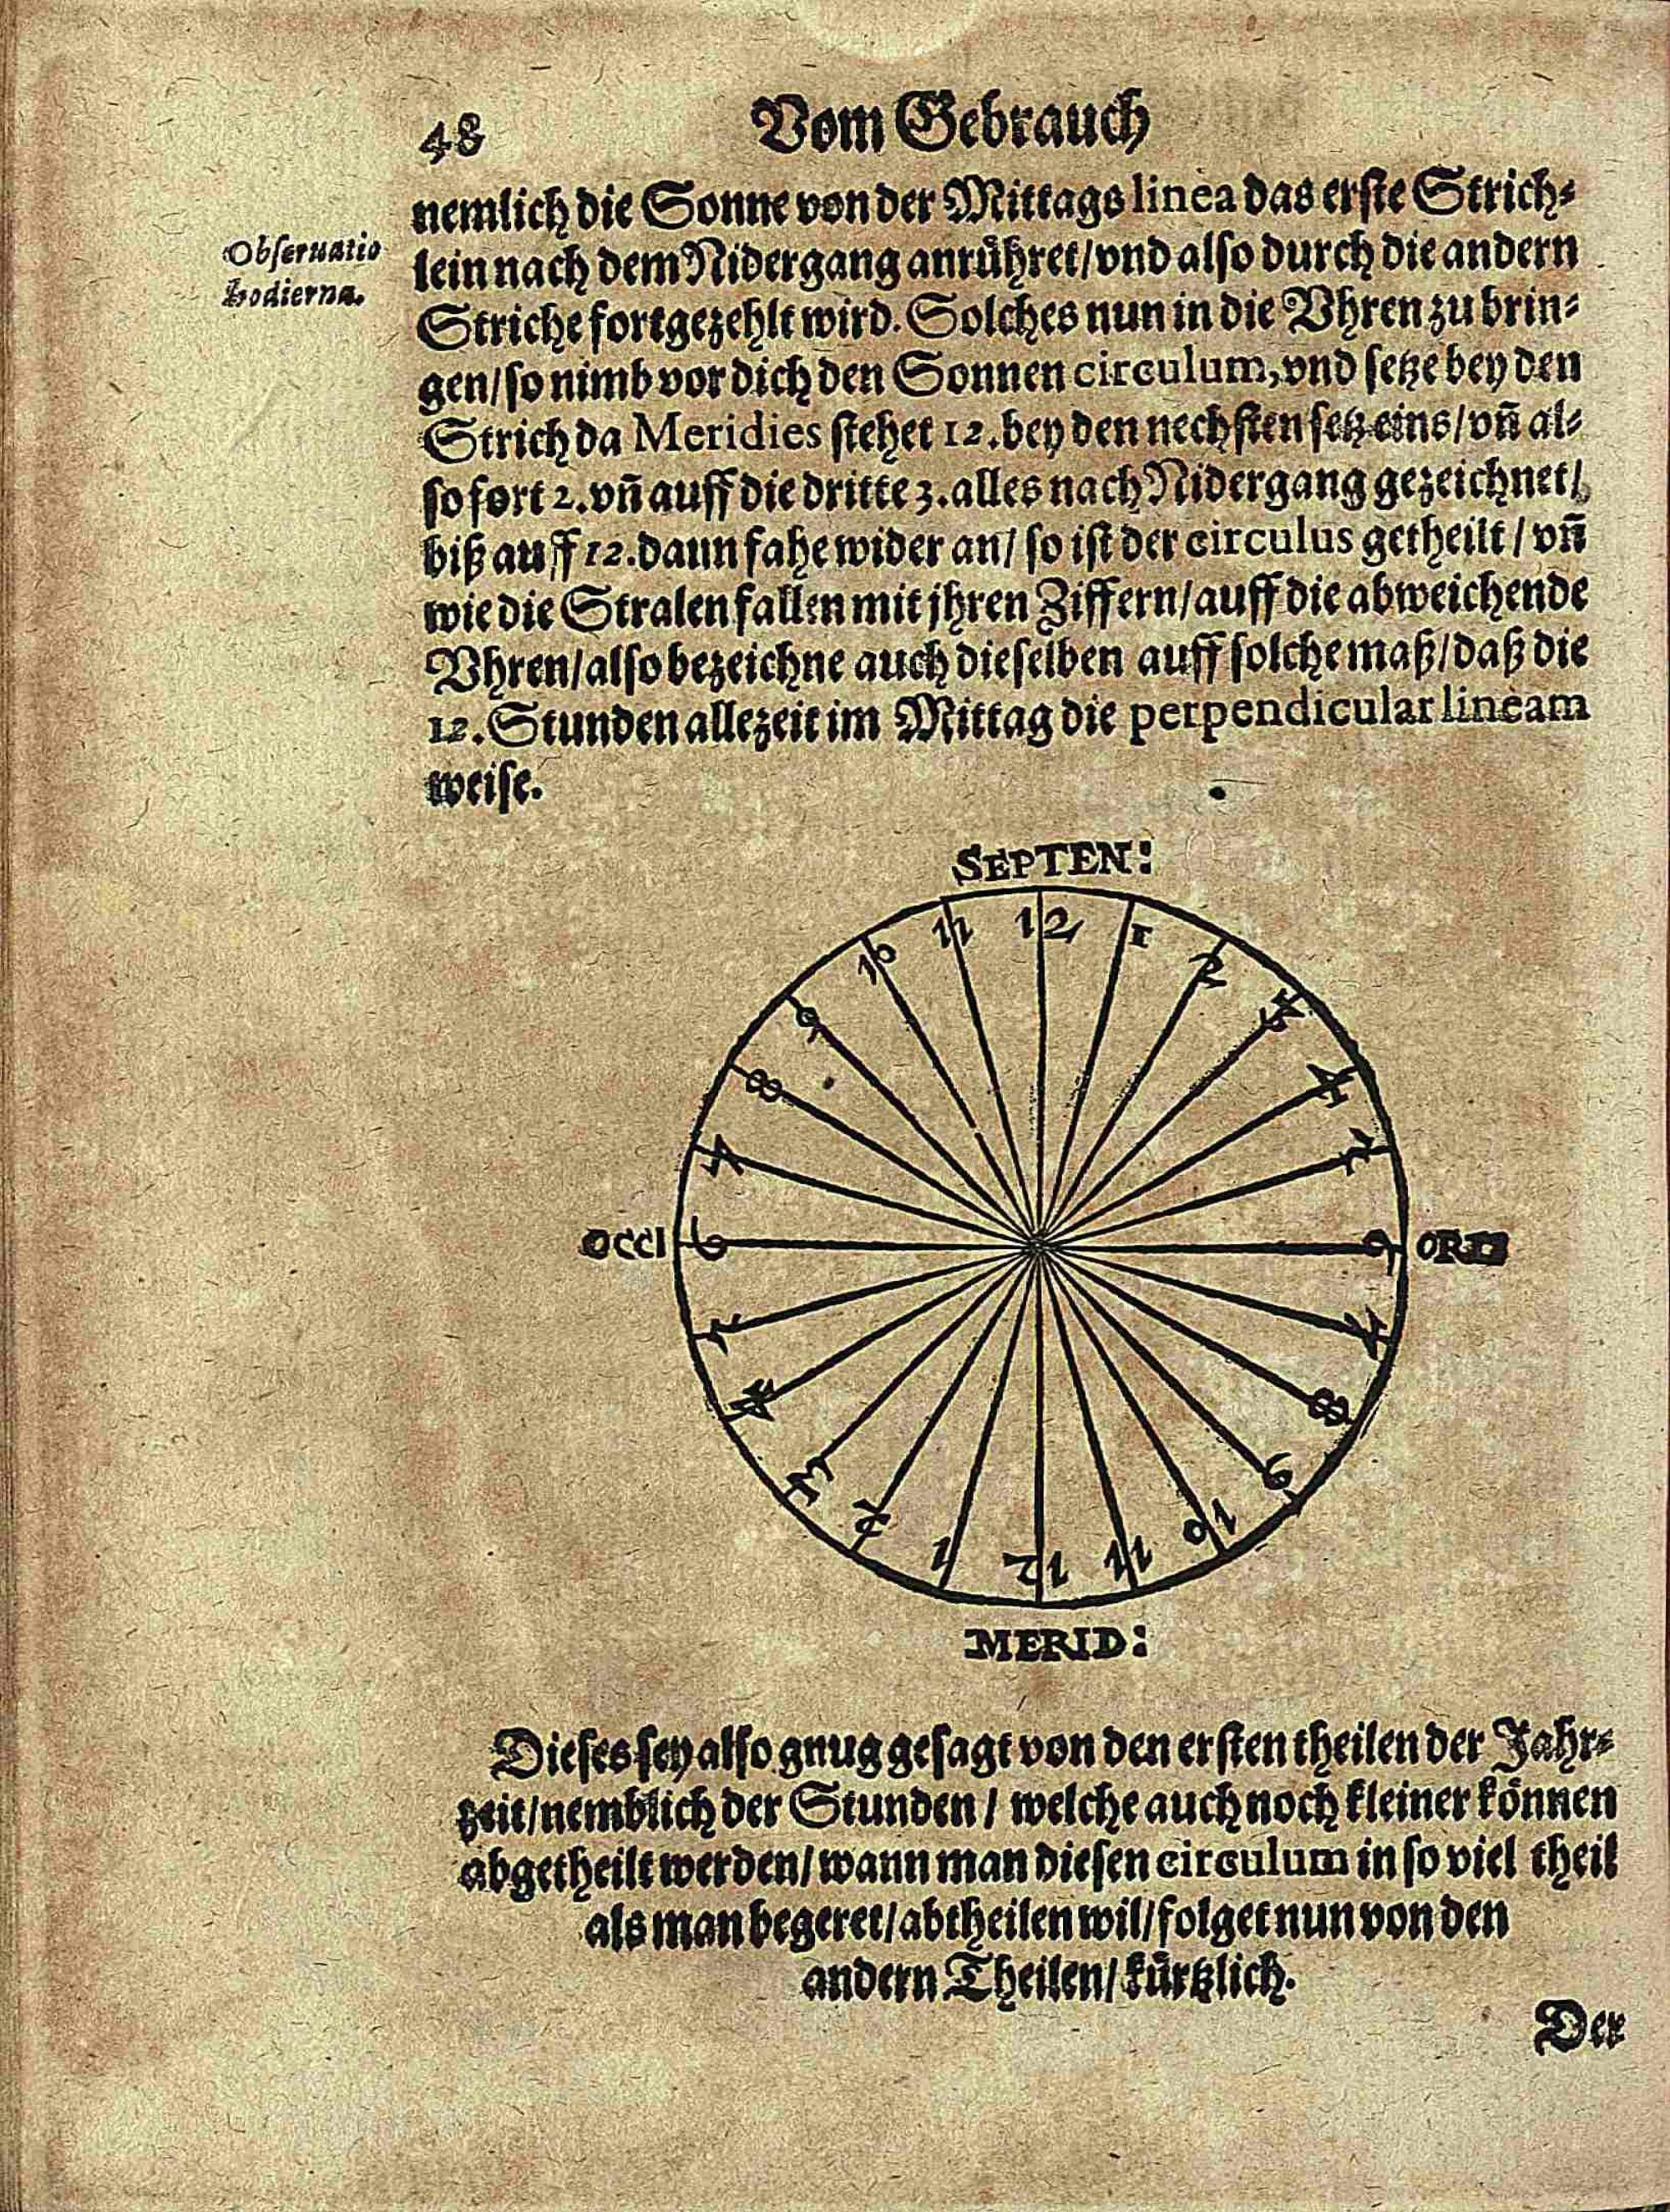 48 Vom Gebrauch
nemlich die Sonne von der Mittags linea das erste Strich-
Obseruatio
hodierna.
lein nach dem Nidergang anrühret/vnd also durch die andern
Striche fortgezehlt wird. Solches nun in die Vhren zu brin-
gen/so nimb vor dich den Sonnen circulum, vnd setze bey den
Strich da Meridies stehet 12. bey den nechsten setz eins/vñ al-
so fort 2. vñ auff die dritte 3. alles nach Nidergang gezeichnet/
biß auff 12. dann fahe wider an/ so ist der circulus getheilt / vñ
wie die Stralen fallen mit jhren Ziffern/auff die abweichende
Vhren/also bezeichne auch dieselben auff solche maß/daß die
12. Stunden allezeit im Mittag die perpendicular lineam
weise.
SEPTEN:
12
1
2
3
4
5
6
ORI
7
8
9
10
11
12
MERID:
1
2
3
4
5
6
OCCI
7
8
9
10
11
Dieses sey also gnug gesagt von den ersten theilen der Jahr-
zeit/nemblich der Stunden / welche auch noch kleiner können
abgetheilt werden/wann man diesen circulum in so viel theil
als man begeret/abtheilen wil/folget nun von den
andern Theilen/kürtzlich.
Der